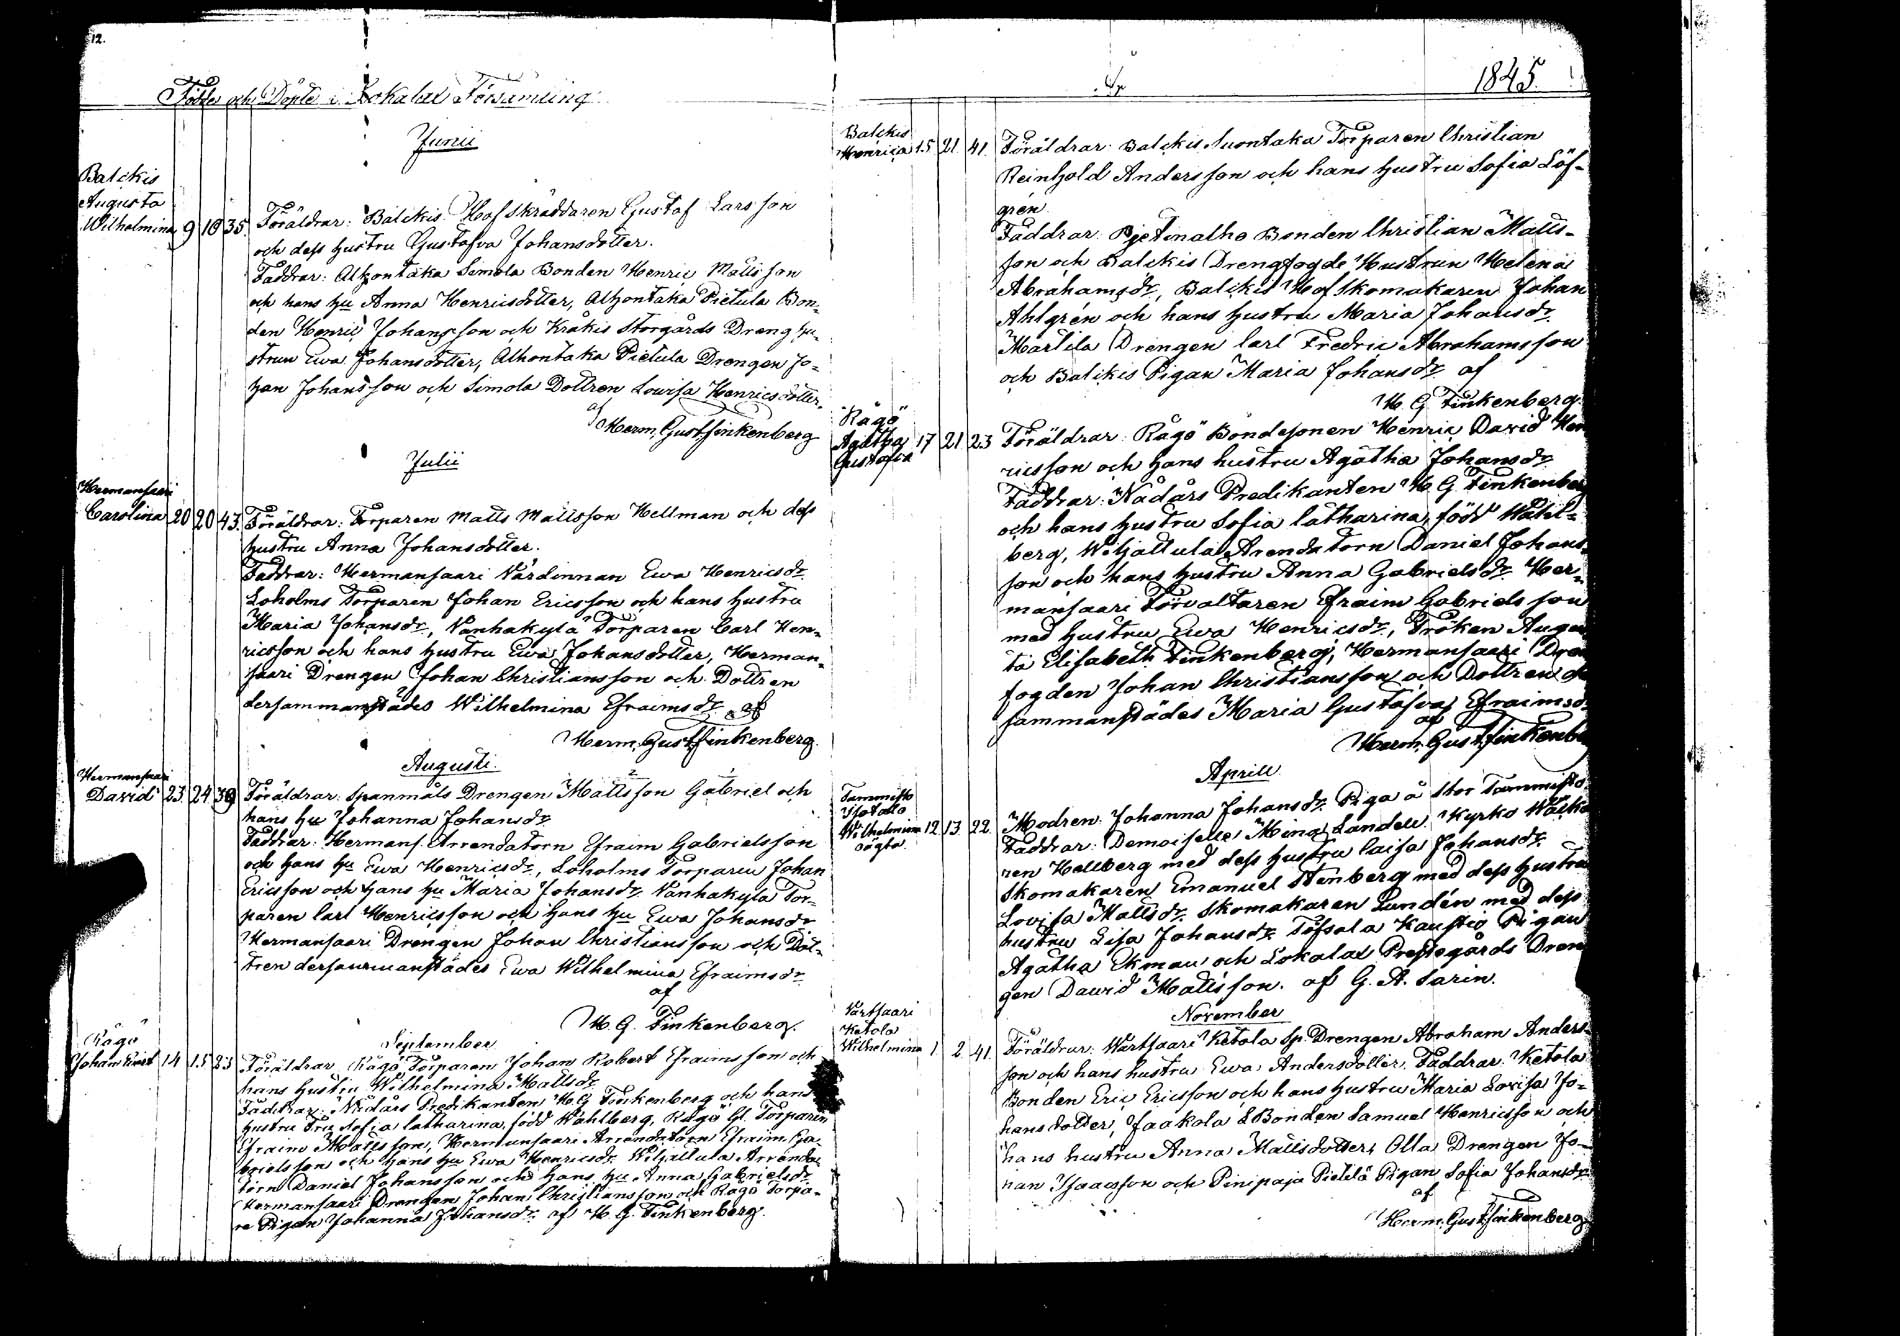 12.
Födde och Döpte i Lokalax Församling
Junii
Balckis
Augusta
Wilhelmina 9 10 35. Föräldrar: Balckis Hofskräddaren Gustaf Larsson
och dess hustru Gustafva Johansdotter.
Faddrar: Alhontaka Simola Bonden Henric Matsson
och hans hu Anna Henricsdotter, Alhontaka Pietula Bon-
den Henric Johansson och Kråkis Storgårds Dreng hu-
strun Ewa Johansdotter, Alhontaka Pietula Drengen Jo-
han Johansson och Simola Dottren Lowisa Henricsdotter.
af
Herm. Gust. Finkenberg
Julii
Hermansaari
Carolina 20 20 43. Föräldrar: Torparen Matts Mattsson Hellman och dess
hustru Anna Johansdotter.
Faddrar: Hermansaari Värdinnan Ewa Henricsdr
Loholms Torparen Johan Ericsson och hans hustru
Maria Johansdr, Vanhakylä Torparen Carl Hen-
ricsson och hans hustru Ewa Johansdotter, Herman-
saari Drengen Johan Christiansson och Dottren
dersammanstädes Wilhelmina Efraimsdr af
Herm. Gust. Finkenberg.
Augusti.
Hermansaari
David 23 24 39 Föräldrar: Spanmåls Drengen Mattsson Gabriel och
hans hu Johanna Johansdr
Faddrar: Hermans. Arrendatorn Efraim Gabrielsson
och hans hu Ewa Henricsdr, Loholms Torparen Johan
Ericsson och hans hu Maria Johansdr Vanhakylä Tor-
paren Carl Henricsson och hans hu Ewa Johansdr
Hermansaari Drengen Johan Christiansson och Dot-
tren dersammanstädes Ewa Wilhelmina Efraimsdr
af
H. G. Finkenberg.
September
Rågö
Johan Ernst 14 15 23 Föräldrar Rågö Torparen Johan Robert Efraimsson och
hans hustru Wilhelmina Mattsdr
Faddrar: Nådårs Predikanten H G Finkenberg och hans
hustru Fru Sofia Catharina, född Wahlberg, Rågö Gl. Torparen
Efraim Mattsson, Hermansaari Arrendatorn Efraim Ga-
brielsson och hans hu Ewa Henricsdr Wiljattula Arrenda-
torn Daniel Johansson och hans hu Anna Gabrielsdr
Hermansaari Drengen Johan Christiansson och Rågö Torpa-
re Pigan Johanna Johansdr af H. G. Finkenberg.
År 1845.
Balckis
Henrica 15 21 41. Föräldrar: Balckis Suontaka Torparen Christian
Reinhold Andersson och hans hustru Sofia Löf-
grén.
Faddrar: Pjetinalho Bonden Christian Matts-
son och Balckis Drengfogde Hustrun Helena
Abrahamsdr, Balckis Hofskomakaren Johan
Ahlgrén och hans hustru Maria Johansdr
Martila Drengen Carl Fredric Abrahamsson
och Balckis Pigan Maria Johansdr af
H G Finkenberg.
Rågö
Agatha
Gustafva 17 21 23 Föräldrar: Rågö Bondesonen Henric David Hen
ricsson och hans hustru Agatha Johansdr
Faddrar: Nådårs Predikanten H G Finkenberg
och hans hustru Sofia Catharina, född Wahl-
berg, Wiljattula Arendatorn Daniel Johans-
son och hans hustru Anna Gabrielsdr Her-
mansaari Förvaltaren Efraim Gabrielsson
med hustru Ewa Henricsdr, Fröken Augus
ta Elisabeth Finkenberg, Hermansaari Dren
fogden Johan Christiansson och Dottren de
sammanstädes Maria Gustafva Efraimsdr
af
Herm. Gust. Finkenbe
Aprill
Tammisto
Isotalo
Wilhelmina 12 13 22. Modren: Johanna Johansdr Piga å Stor Tammisto.
oägta Faddrar: Demoiselle Mina Landell. Kyrko Wäkta
ren Hellberg med dess hustru Caisa Johansdr.
Skomakaren Emanuel Stenberg med dess hustru
Lovisa Mattsdr. Skomakaren Lundén med dess
hustru Lisa Johansdr Töfsala Kaustio Pigan
Agatha Ekman och Lokalax Prestegårds Dren
gen Dawid Mattsson. af G. A. Sarin.
November
Vartsaari
Ketola
Wilhelmina 1 2 41. Föräldrar: Wartsaari Ketola Sp. Drengen Abraham Anders-
son och hans hustru Ewa Andersdotter. Faddrar: Ketola
Bonden Eric Ericsson och hans hustru Maria Lovisa Jo-
hansdotter, Jaakola Bonden Samuel Henricsson och
hans hustru Anna Mattsdotter, Olla Drengen Jo-
han Isaacsson och Pinipaja Pietilä Pigan Sofia Johansdr
af
Herm. Gust. Finkenberg